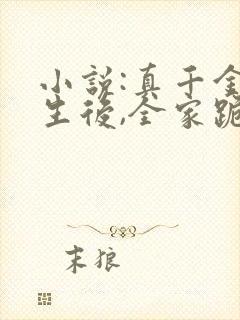 小説:真千金
生後,全家跪
末狼